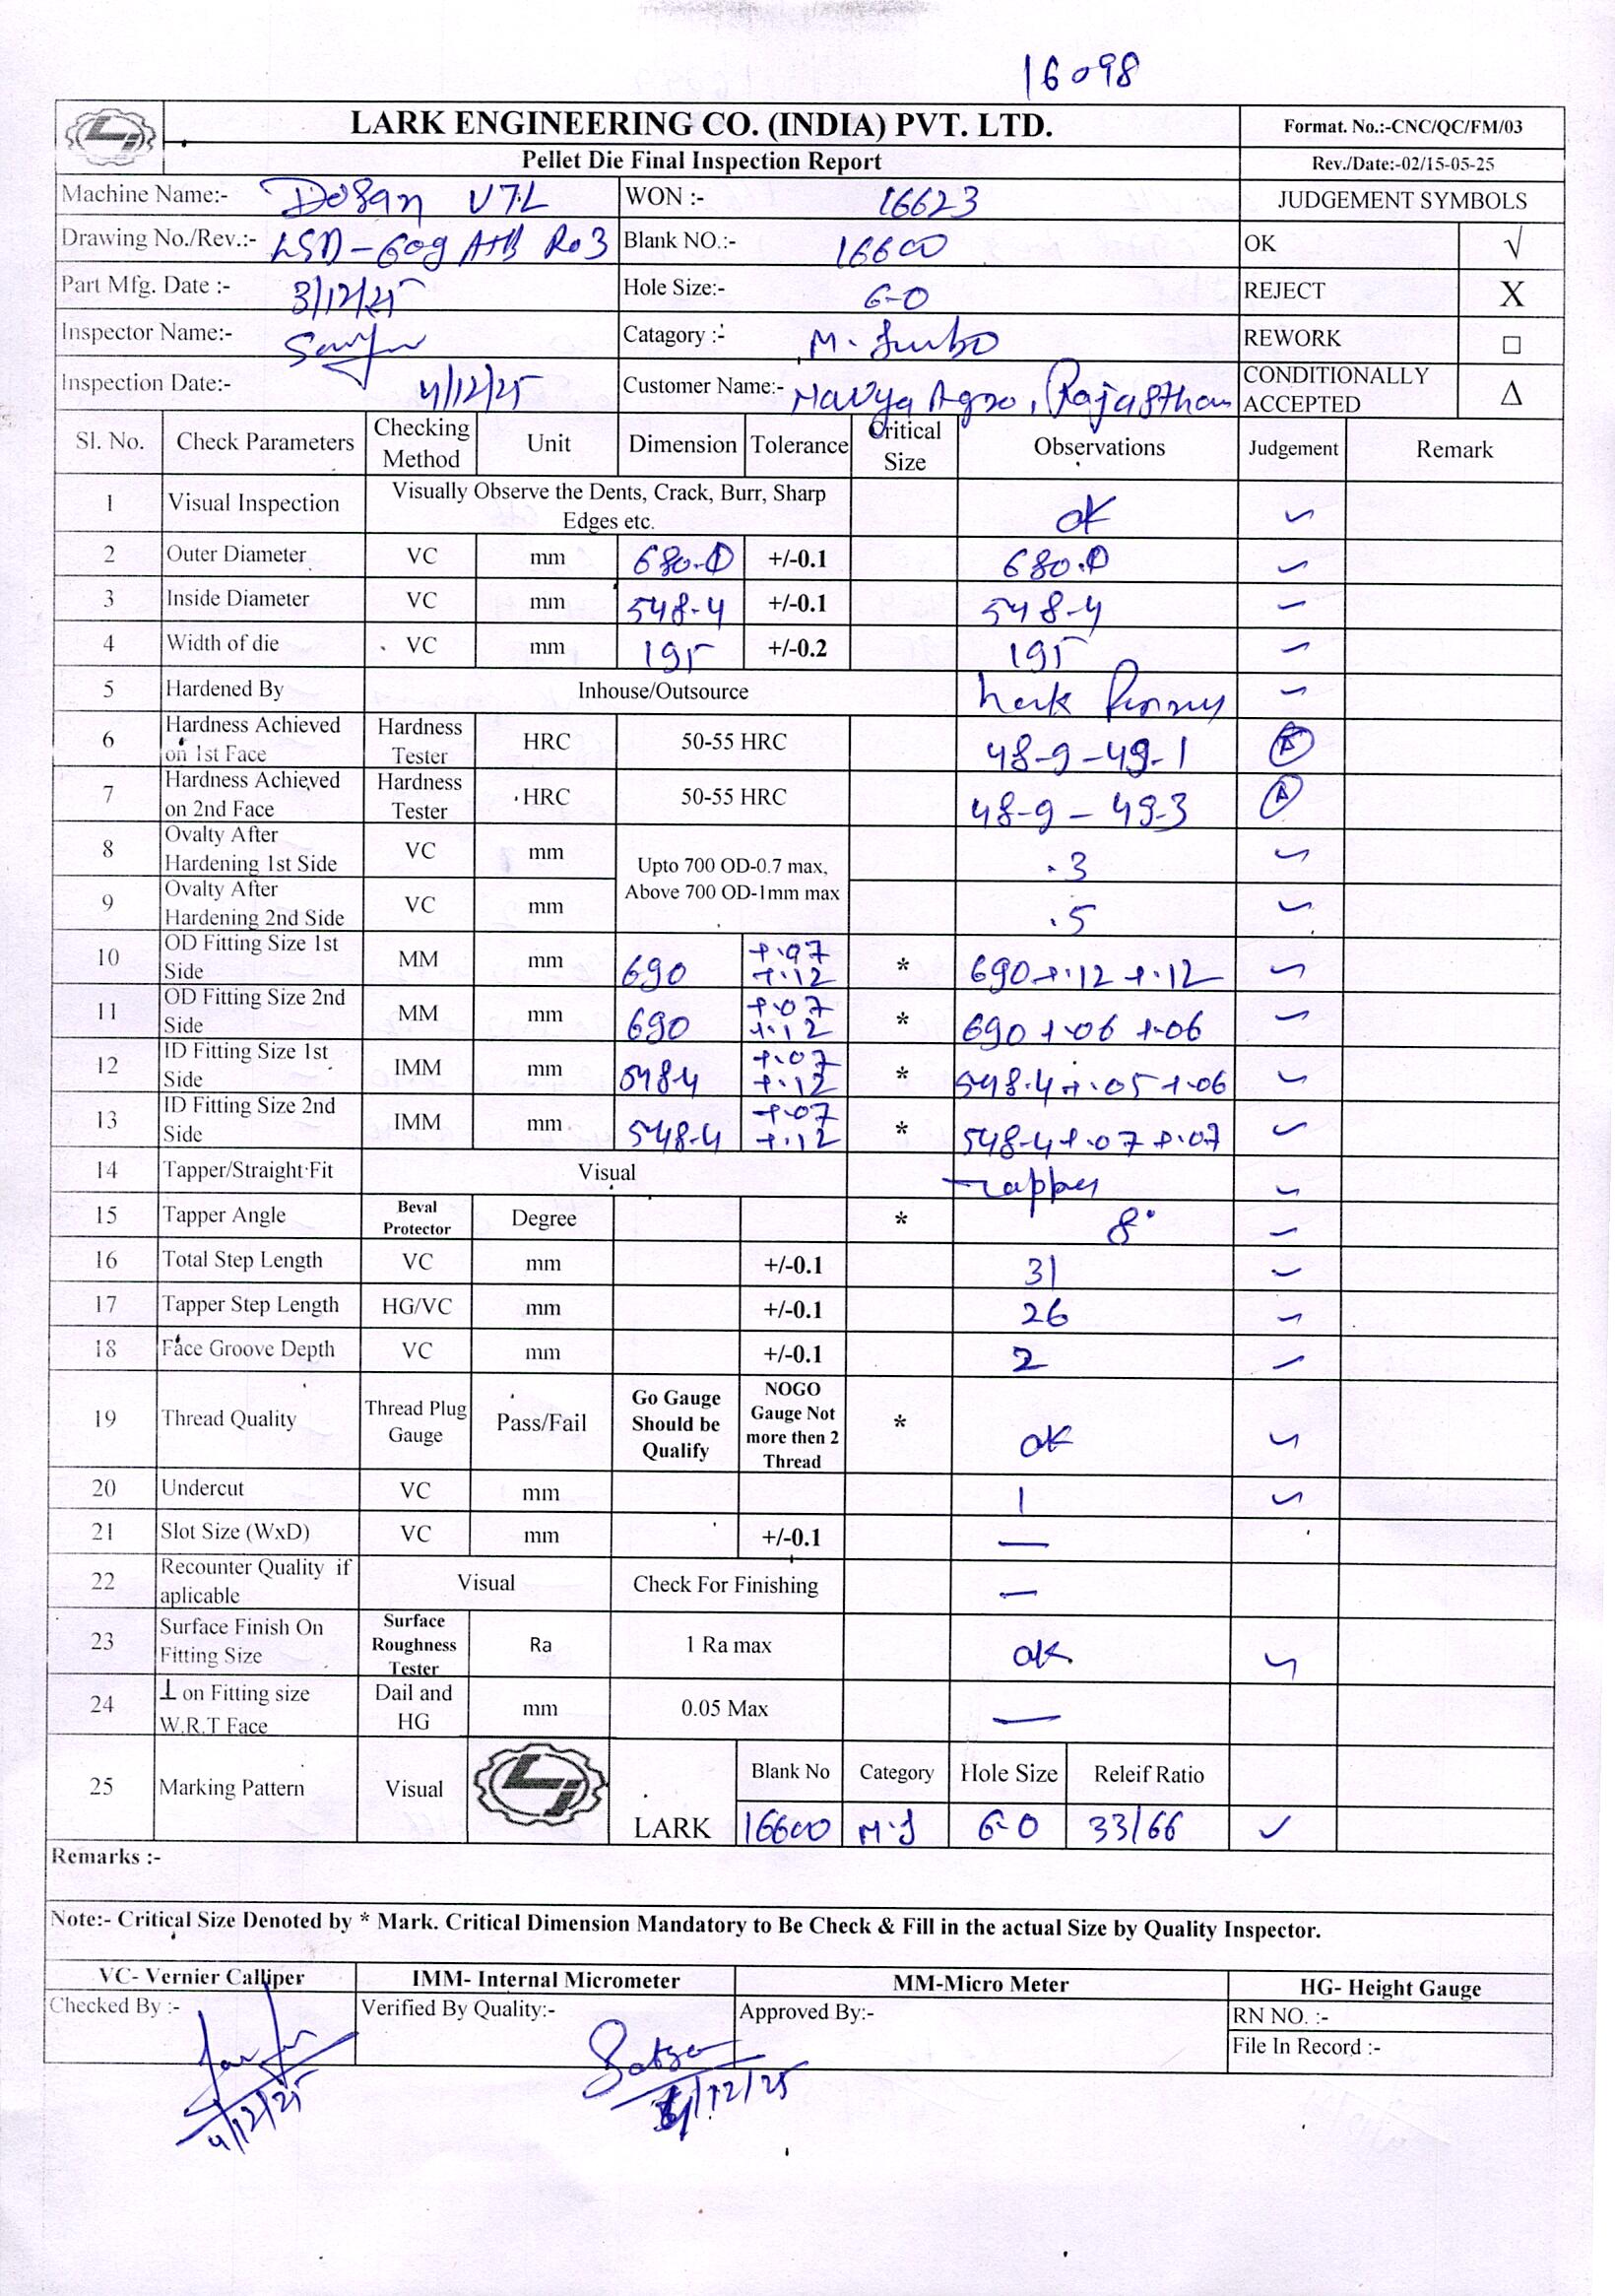 16098
LARK ENGINEERING CO. (INDIA) PVT. LTD.
Format. No.:-CNC/QC/FM/03
Pellet Die Final Inspection Report
Rev./Date:-02/15-05-25
Machine Name:- Dosan VTL WON :- 16623 JUDGEMENT SYMBOLS
Drawing No./Rev.:- LSD-609 A+B R03 Blank NO.:- 16600 OK √
Part Mfg. Date :- 3/12/25 Hole Size:- 6-0 REJECT X
Inspector Name:- Catagory :- M. Jumbo REWORK □
Inspection Date:- 4/12/25 Customer Name:- Navya Agro, Rajasthan CONDITIONALLY ACCEPTED Δ
Sl. No. Check Parameters Checking Method Unit Dimension Tolerance Critical Size Observations Judgement Remark
1 Visual Inspection Visually Observe the Dents, Crack, Burr, Sharp Edges etc. ok ✓
2 Outer Diameter VC mm 680.0 +/-0.1 680.0 ✓
3 Inside Diameter VC mm 548-4 +/-0.1 548-4 ✓
4 Width of die VC mm 195 +/-0.2 195 ✓
5 Hardened By Inhouse/Outsource ✓
6 Hardness Achieved on 1st Face Hardness Tester HRC 50-55 HRC 48-9-49-1
7 Hardness Achieved on 2nd Face Hardness Tester HRC 50-55 HRC 48-9-49-3
8 Ovalty After Hardening 1st Side VC mm Upto 700 OD-0.7 max, Above 700 OD-1mm max .3 ✓
9 Ovalty After Hardening 2nd Side VC mm .5 ✓
10 OD Fitting Size 1st Side MM mm 690 +.07 +.12 * 690+.12 +.12 ✓
11 OD Fitting Size 2nd Side MM mm 690 +.07 +.12 * 690 +.06 +.06 ✓
12 ID Fitting Size 1st Side IMM mm 548-4 +.07 +.12 * 548-4+.05+.06 ✓
13 ID Fitting Size 2nd Side IMM mm 548-4 +.07 +.12 * 548-4+.07 +.07 ✓
14 Tapper/Straight Fit Visual Tapper ✓
15 Tapper Angle Beval Protector Degree * 8° ✓
16 Total Step Length VC mm +/-0.1 31 ✓
17 Tapper Step Length HG/VC mm +/-0.1 26 ✓
18 Face Groove Depth VC mm +/-0.1 2 ✓
19 Thread Quality Thread Plug Gauge Pass/Fail Go Gauge Should be Qualify NOGO Gauge Not more then 2 Thread * ok ✓
20 Undercut VC mm 1 ✓
21 Slot Size (WxD) VC mm +/-0.1 —
22 Recounter Quality if aplicable Visual Check For Finishing —
23 Surface Finish On Fitting Size Surface Roughness Tester Ra 1 Ra max ok ✓
24 ⊥ on Fitting size W.R.T Face Dail and HG mm 0.05 Max —
25 Marking Pattern Visual LARK Blank No Category Hole Size Releif Ratio
16600 M.J 6-0 33/66 ✓
Remarks :-
Note:- Critical Size Denoted by * Mark. Critical Dimension Mandatory to Be Check & Fill in the actual Size by Quality Inspector.
VC- Vernier Calliper IMM- Internal Micrometer MM-Micro Meter HG- Height Gauge
Checked By :- Verified By Quality:- Approved By:- RN NO. :-
File In Record :-
4/12/25 4/12/25